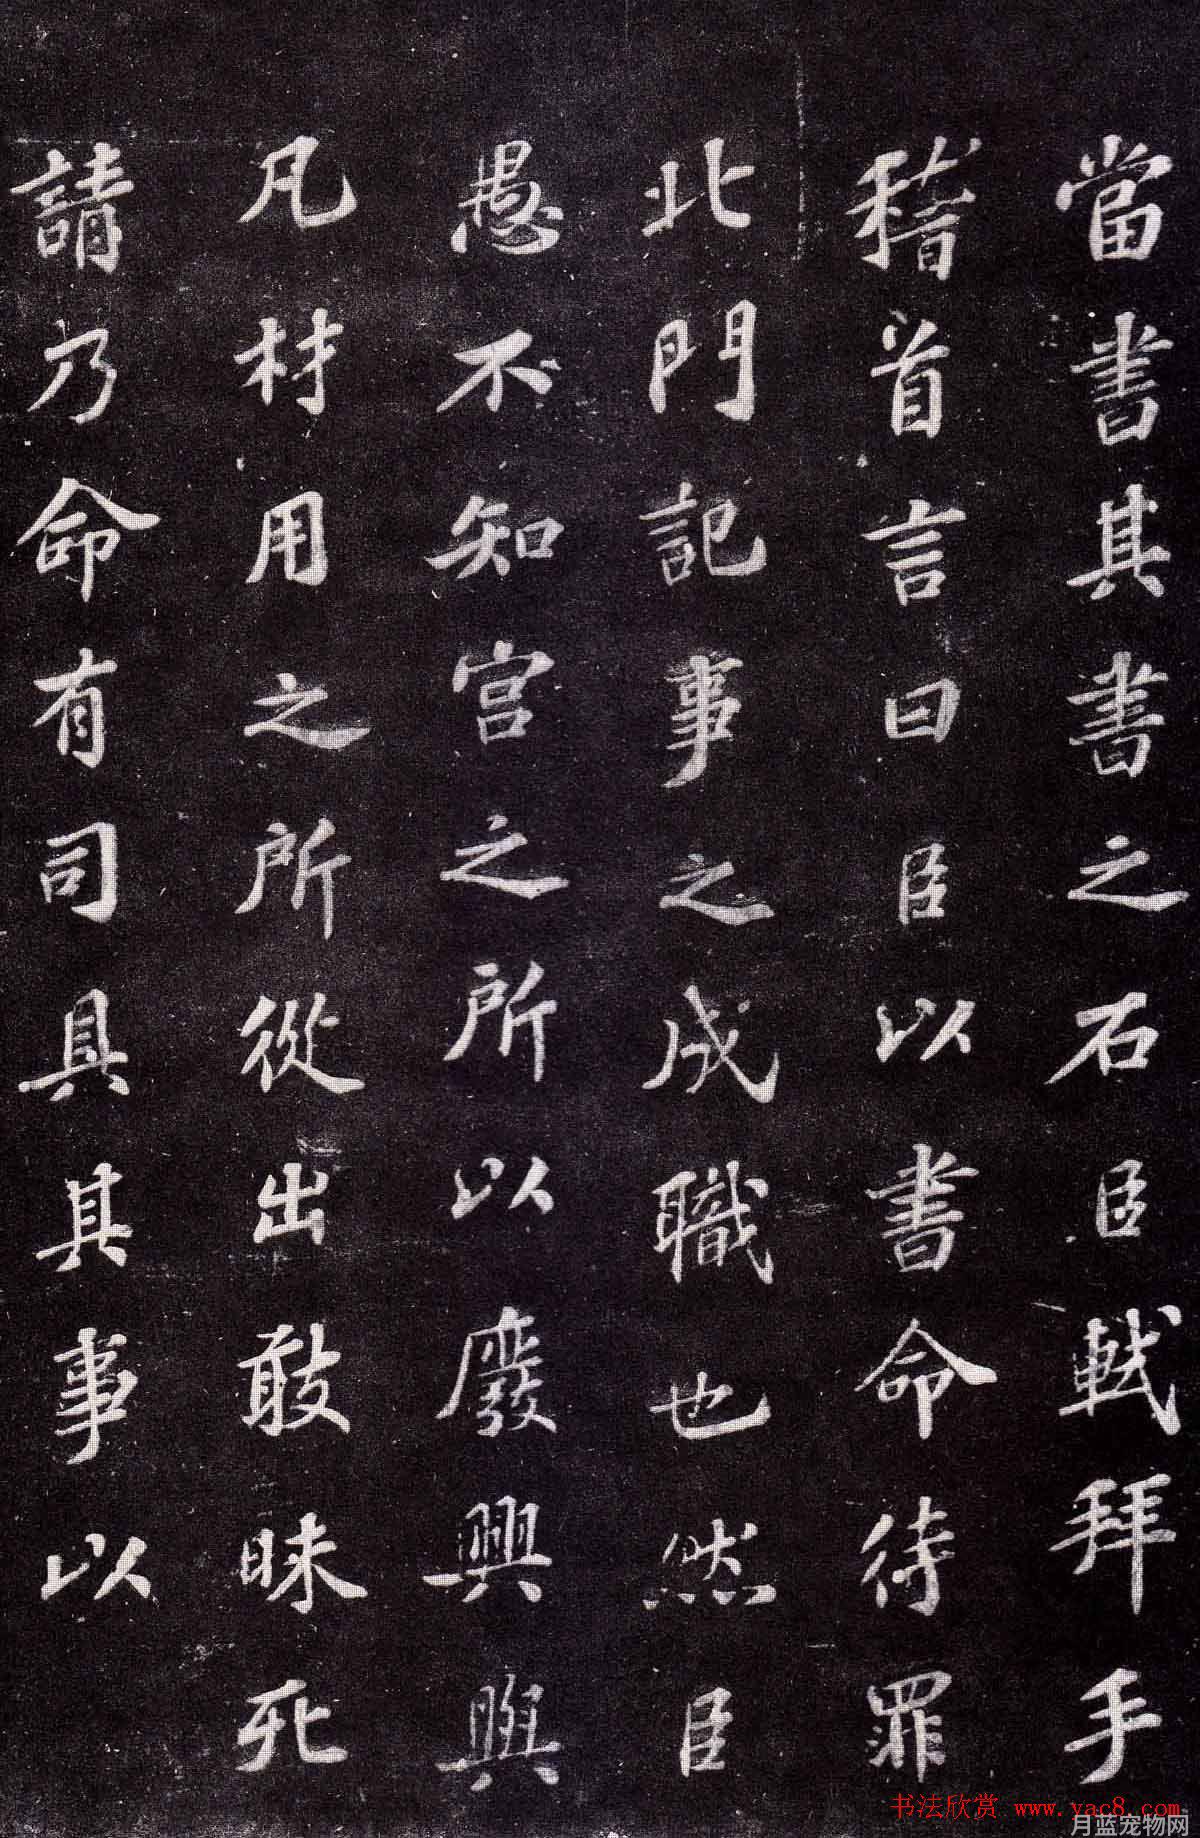 當書其書之石臣軾拜手
稽首言曰臣以書命待罪
北門記事之成職也然臣
愚不知宮之所以廢興與
凡材用之所從出敢昧死
請乃命有司具其事以
书法欣赏 www.yac8.com
月蓝宠物网